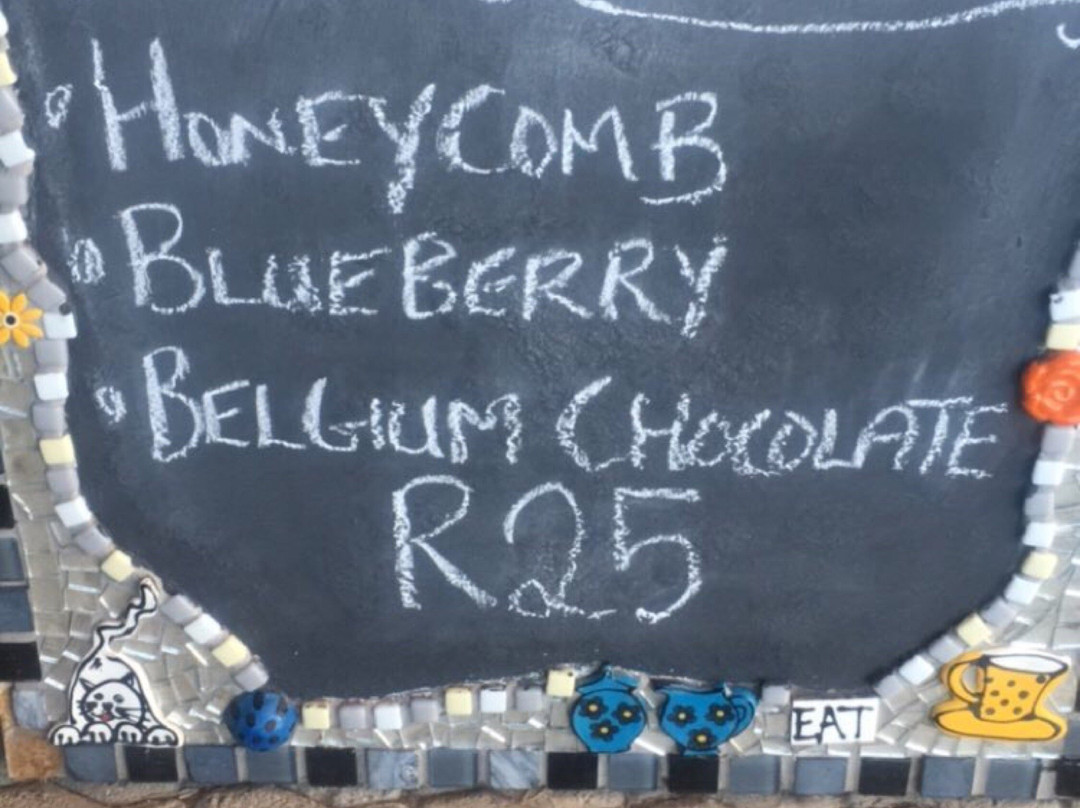 HONEYCOMB
BLUEBERRY
BELGIUM CHOCOLATE
R25
EAT